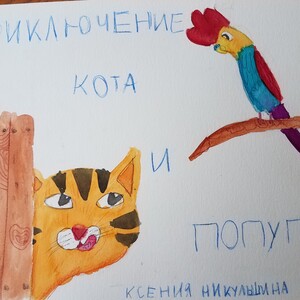 РИКЛЮЧЕНИЕ
КОТА
И
ПОПУГ
КСЕНИЯ НИКУЛЬШИНА